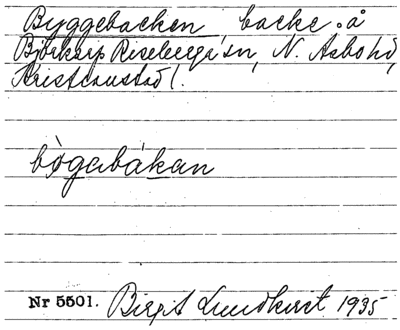 Byggebacken backe å
Björkarp Riseberga sn, N. Åsbo hd,
Kristianstad l.
bògabákan
Nr 5501. Birgit Lundkvist 1935